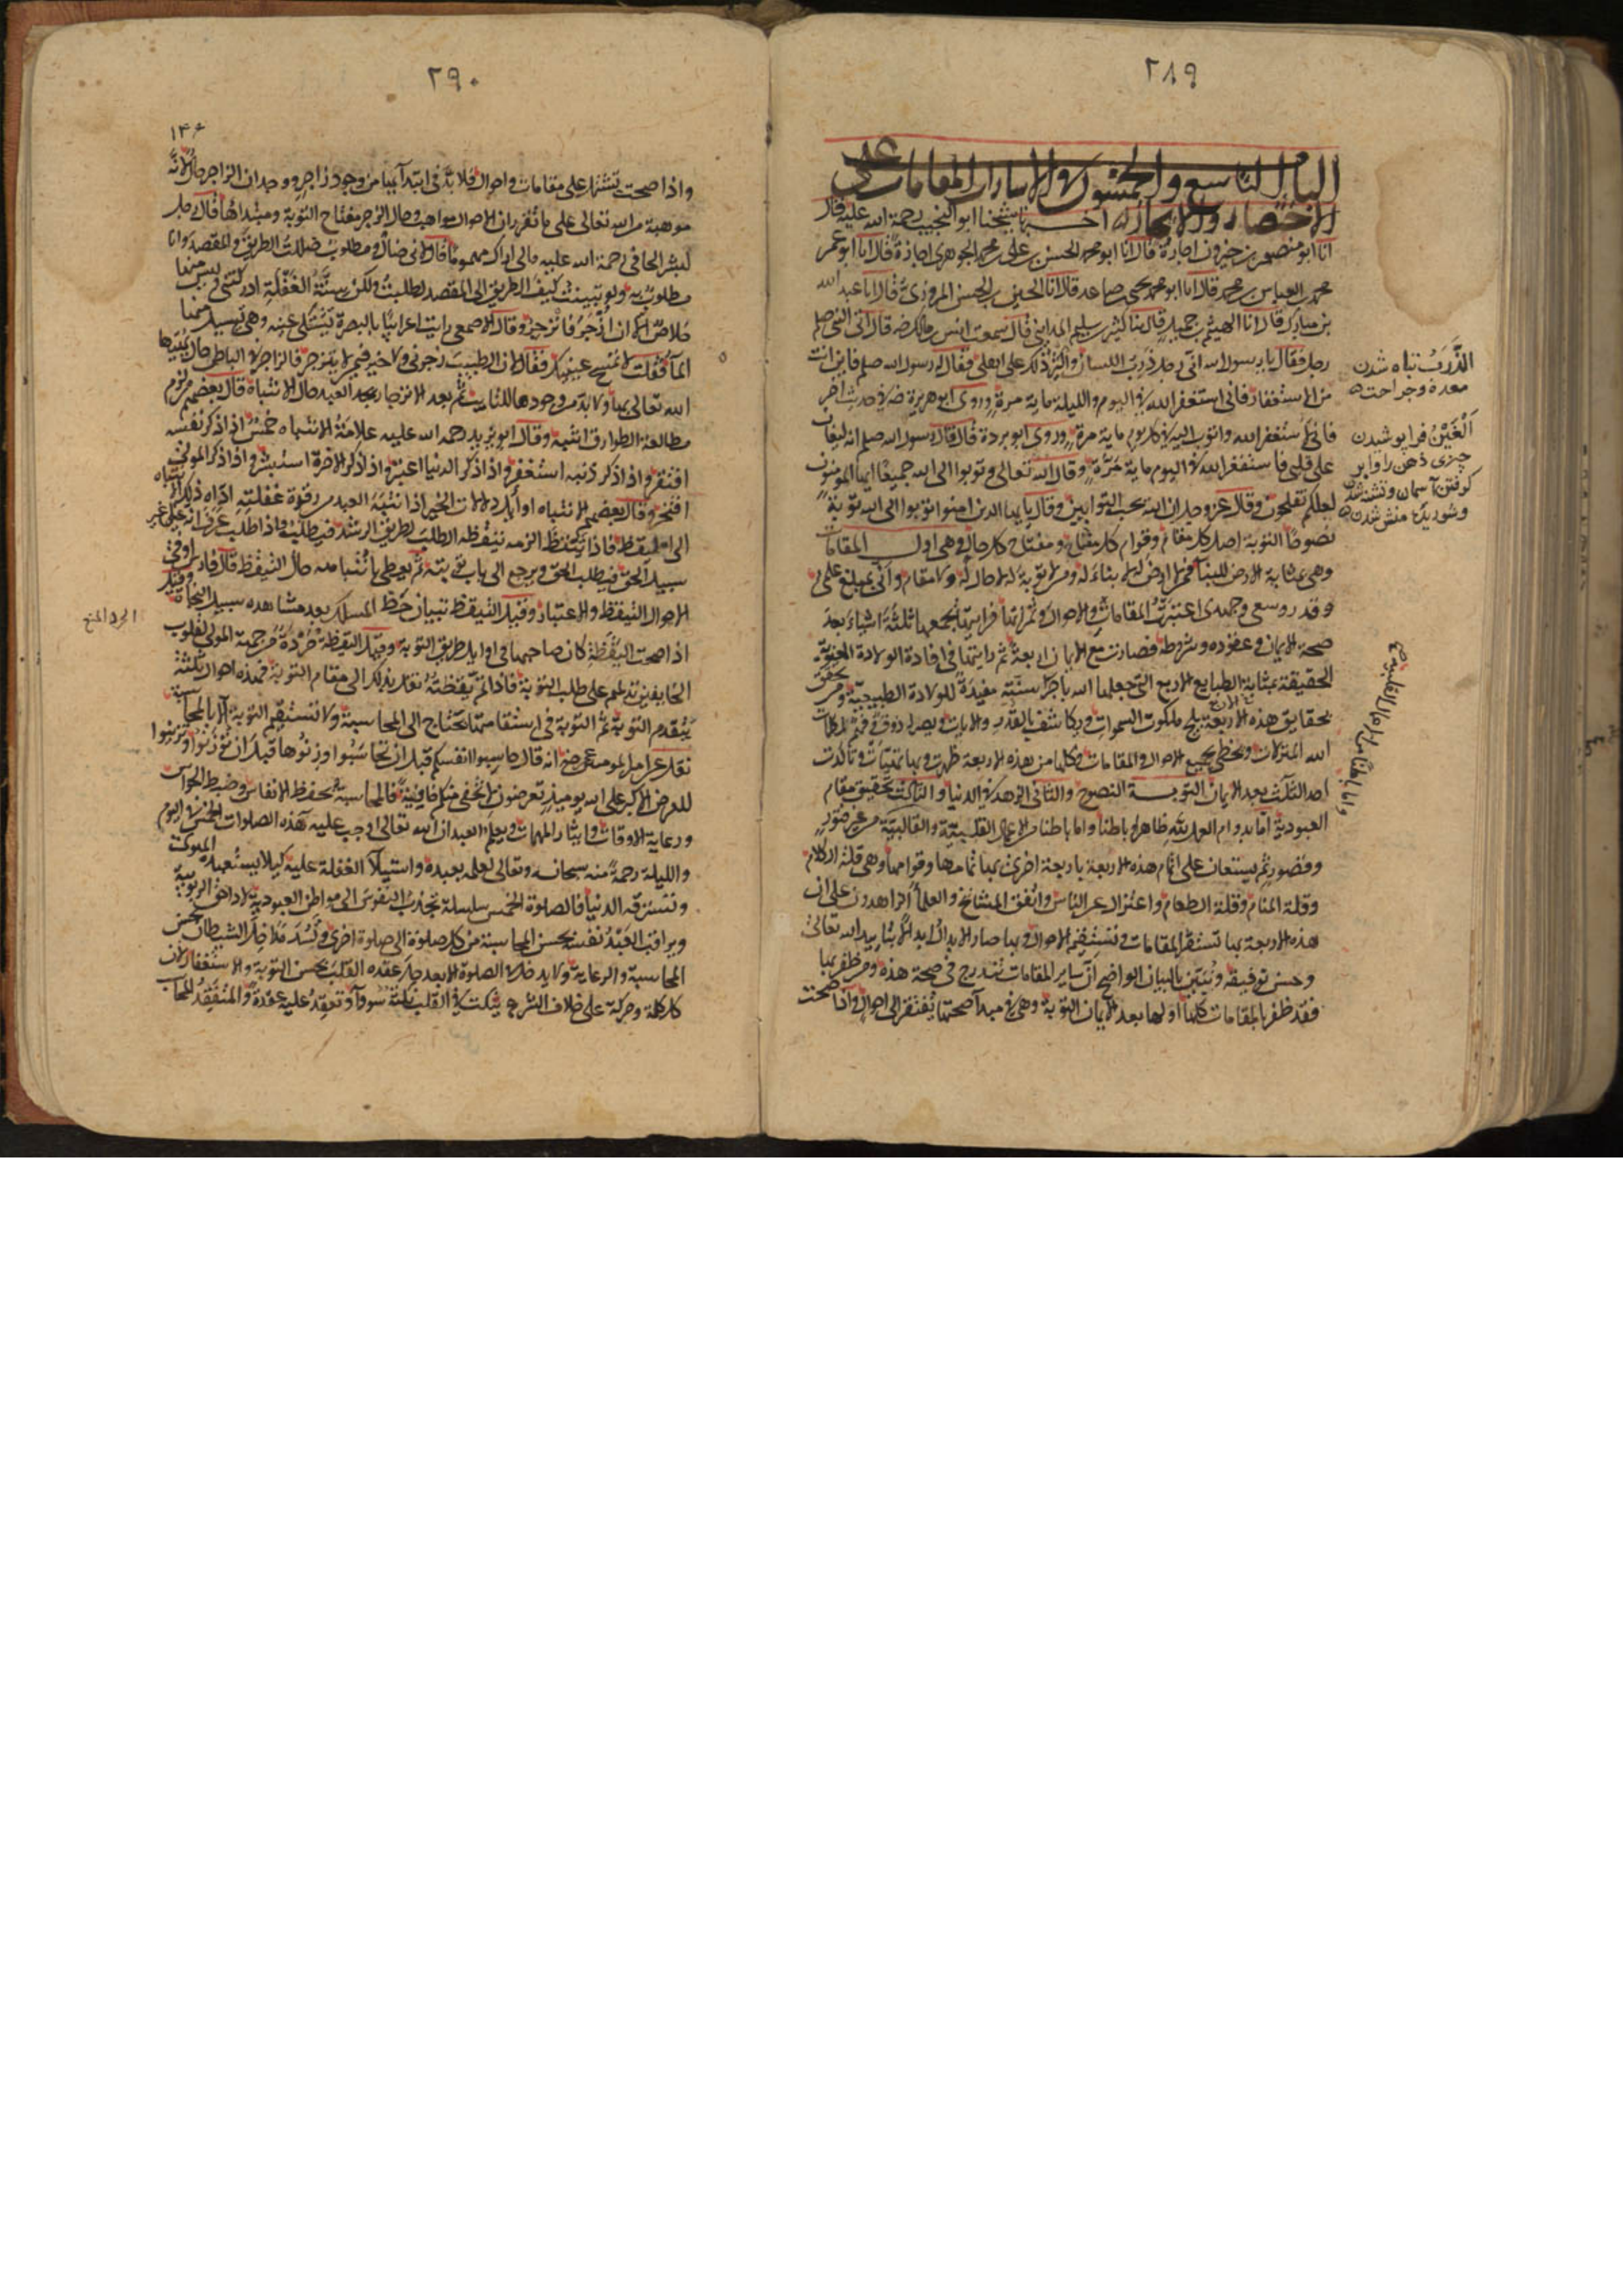 ٢٨٩
الباب التاسع والخمسون في الاشارات الى المقامات على
الاختصار والايجاز اخبرنا شيخنا ابو النجيب رحمة الله عليه قال
انا ابو منصور بن خيرون اجازة قال انا ابو محمد الحسن بن على بن محمد الجوهرى اجازة قال انا ابو عمر
محمد بن العباس بن محمد قال انا ابو محمد يحيى بن صاعد قال انا الحسين بن الحسن المروزى قال انا عبد الله
بن مبارك قال انا الهيثم بن جميل قال انا كثير بن سليم المداينى قال سمعت انس بن مالك رضه قال اتى النبى صلم
رجل فقال يا رسول الله انى رجل ذرب اللسان واكثر ذلك على اهلى فقال له رسول الله صلم فاين انت
من الاستغفار فانى استغفر الله فى اليوم والليلة ماية مرة وروى ابو هريرة رضه فى حديث اخر
فانى لاستغفر الله واتوب اليه فى كل يوم ماية مرة وروى ابو بردة قال قال رسول الله صلم انه ليغان
على قلبى فاستغفر الله فى اليوم ماية مرة وقال الله تعالى وتوبوا الى الله جميعا ايها المومنون
لعلكم تفلحون وقال عز وجل ان الله يحب التوابين وقال يا ايها الذين امنوا توبوا الى الله توبة
نصوحا التوبة اصل كل مقام وقوام كل مقام ومفتاح كل حال وهى اول المقامات
وهى بمثابة الارض للبناء فمن لا ارض له لا بناء له ومن لا توبة له لا حال له ولا مقام له وانى بمبلغ علمى
وقدر وسعى وجهدى اعتبرت المقامات والاحوال وثمراتها فرايتها يجمعها ثلثة اشياء بعد
صحة الايمان وعقوده وشروطه فصارت مع الايمان اربعة ثم رايتها فى افادة الولادة المعنوية
الحقيقة بمثابة الطبايع الاربع التى جعلها الله باجراء سنته مفيدة للولادة الطبيعية ومن تحقق
بحقايق هذه الاربعة يلج ملكوت السموات ويكاشف بالقدر والايات ويصير له ذوق وفهم لكلمات
الله المنزلات ويحظى بجميع الاحوال والمقامات فكلها من هذه الاربعة ظهرت وبها تهيات وتاكدت
احد الثلث بعد الايمان التوبة النصوح والثانى الزهد فى الدنيا والثالث تحقيق مقام
العبودية بدوام العمل لله ظاهرا وباطنا من الاعمال القلبية والقالبية من غير فتور
وقصور ثم يستعان على اتمام هذه الاربعة باربعة اخرى بها تمامها وقوامها وهى قلة الكلام
وقلة المنام وقلة الطعام واعتزال عن الناس واتفق المشايخ والعلماء الزاهدون على ان
هذه الاربعة بها تستقر المقامات وتستقيم الاحوال وبها صار الابدال ابدالا بتاييد الله تعالى
وحسن توفيقه ونبين بالبيان الواضح ان ساير المقامات تندرج فى صحة هذه ومن ظفر بها
فقد ظفر بالمقامات كلها اولها بعد الايمان التوبة وهى فى مبدا صحتها تفتقر الى احوال واذا صحت
الذَّرَب تباه شدن
معده وجراحت
الغَيْن فرا پوشيدن
چيزى ذهن را وابر
كرفتن آسمان وتشنه شدن
وشوريدن منش شدن
٢٩٠
١٤٠
واذا صحت تشتمل على مقامات واحوال فلا بد فى ابتدائها من وجود زاجر ووجدان الزاجر حال لانه
موهبة من الله تعالى على ما تقرر ان الاحوال مواهب وحال الزجر مفتاح التوبة ومبداها قال رجل
لبشر الحافى رحمة الله عليه مالى اراك مهموما قال لانى ضال ومطلوب ضللت الطريق والمقصد وانا
مطلوب به ولو تبينت كيف الطريق الى المقصد لطلبت ولكن سنة الغفلة ادركتنى وليس منها
خلاص الا ان ازجر فانزجر وقال الاصمعى رايت اعرابيا بالبصرة يشتكى عينه وهى تسيل منها
الما فقلت الا تمسح عينيك فقال لان الطبيب زجرنى ولا خير فيمن لا ينزجر فالزاجر فى الباطن حال يهبها
الله تعالى ولا بد من وجودها للتايب ثم بعد الانزجار يجد العبد حال الانتباه قال بعضهم من لزم
مطالعة الطوارق انتبه وقال ابو يزيد رحمه الله عليه علامة الانتباه خمس اذا ذكر نفسه
افتقر واذا ذكر ذنبه استغفر واذا ذكر الدنيا اعتبر واذا ذكر الاخرة استبشر واذا ذكر المولى
افتخر وقال بعضهم الانتباه اوايل دلالات الخير اذا انتبه العبد من رقدة غفلته اداه ذلك الانتباه
الى التيقظ فاذا تيقظ الزمه تيقظه الطلب لطريق الرشد فيطلب واذا طلب عرف انه على غير
سبيل الحق فيطلب الحق ويرجع الى باب توبته ثم يعطى بانتباهه حال التيقظ قال فارس اوفى
الاحوال التيقظ والاعتبار وقيل التيقظ تبيان خط المسلك بعد مشاهده سبيل النجاة وقيل
اذا صحت اليقظة كان صاحبها فى اوايل طريق التوبة وقيل اليقظة خردة من جهة المولى لقلوب
الخايفين تدلهم على طلب التوبة فاذا تم يقظته نقل بذلك الى مقام التوبة فهذه احوال ثلثة
يتقدم التوبة ثم التوبة فى استقامتها تحتاج الى المحاسبة ولا تستقيم التوبة الا بالمحاسبة
نقل عن امير المومنين على رضه انه قال حاسبوا انفسكم قبل ان تحاسبوا وزنوها قبل ان توزنوا وتزينوا
للعرض الاكبر على الله يوميذ تعرضون لا تخفى منكم خافية فالمحاسبة بحفظ الانفاس وضبط الحواس
ورعاية الاوقات وايثار المهمات ويعلم العبد ان الله تعالى اوجب عليه هذه الصلوات الخمس فى اليوم
والليلة رحمة منه سبحانه وتعالى لعلمه بعبده واستيلاء الغفلة عليه كيلا يستعبده الهوى
وتسترقه الدنيا فالصلوة الخمس سلسلة تجذب النفوس الى مواطن العبودية لاداء حق الربوبية
ويراقب العبد نفسه بحسن المحاسبة من كل صلوة الى صلوة اخرى ويسد مداخل الشيطان بحسن
المحاسبة والرعاية ولا يدخل فى الصلوة الا بعد حل عقد القلب بحسن التوبة والاستغفار لان
كل كلمة وحركة على خلاف الشرع ينكت فى القلب نكتة سوداء وتعقد عليه عقدة والمتفقد المحاسب